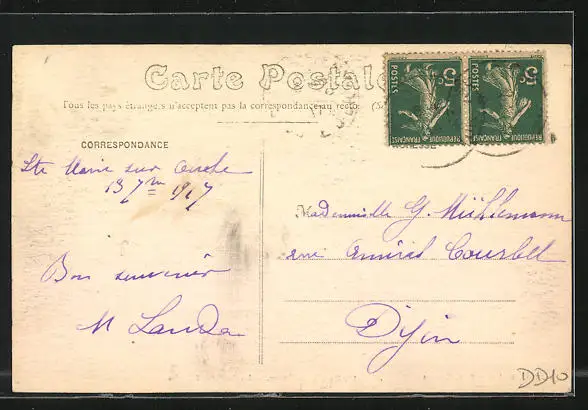 Carte Postale
Tous les pays étrangers n'acceptent pas la correspondance au recto. (S
5c
POSTES
REPUBLIQUE FRANÇAISE
5c
POSTES
REPUBLIQUE FRANÇAISE
CORRESPONDANCE
ADRESSE
Ste Marie sur Ouche
13 7bre 1917
Bon souvenir
M Landa
Mademoiselle G. Mühlemann
rue Amiral Courbet
Dijon
DD10